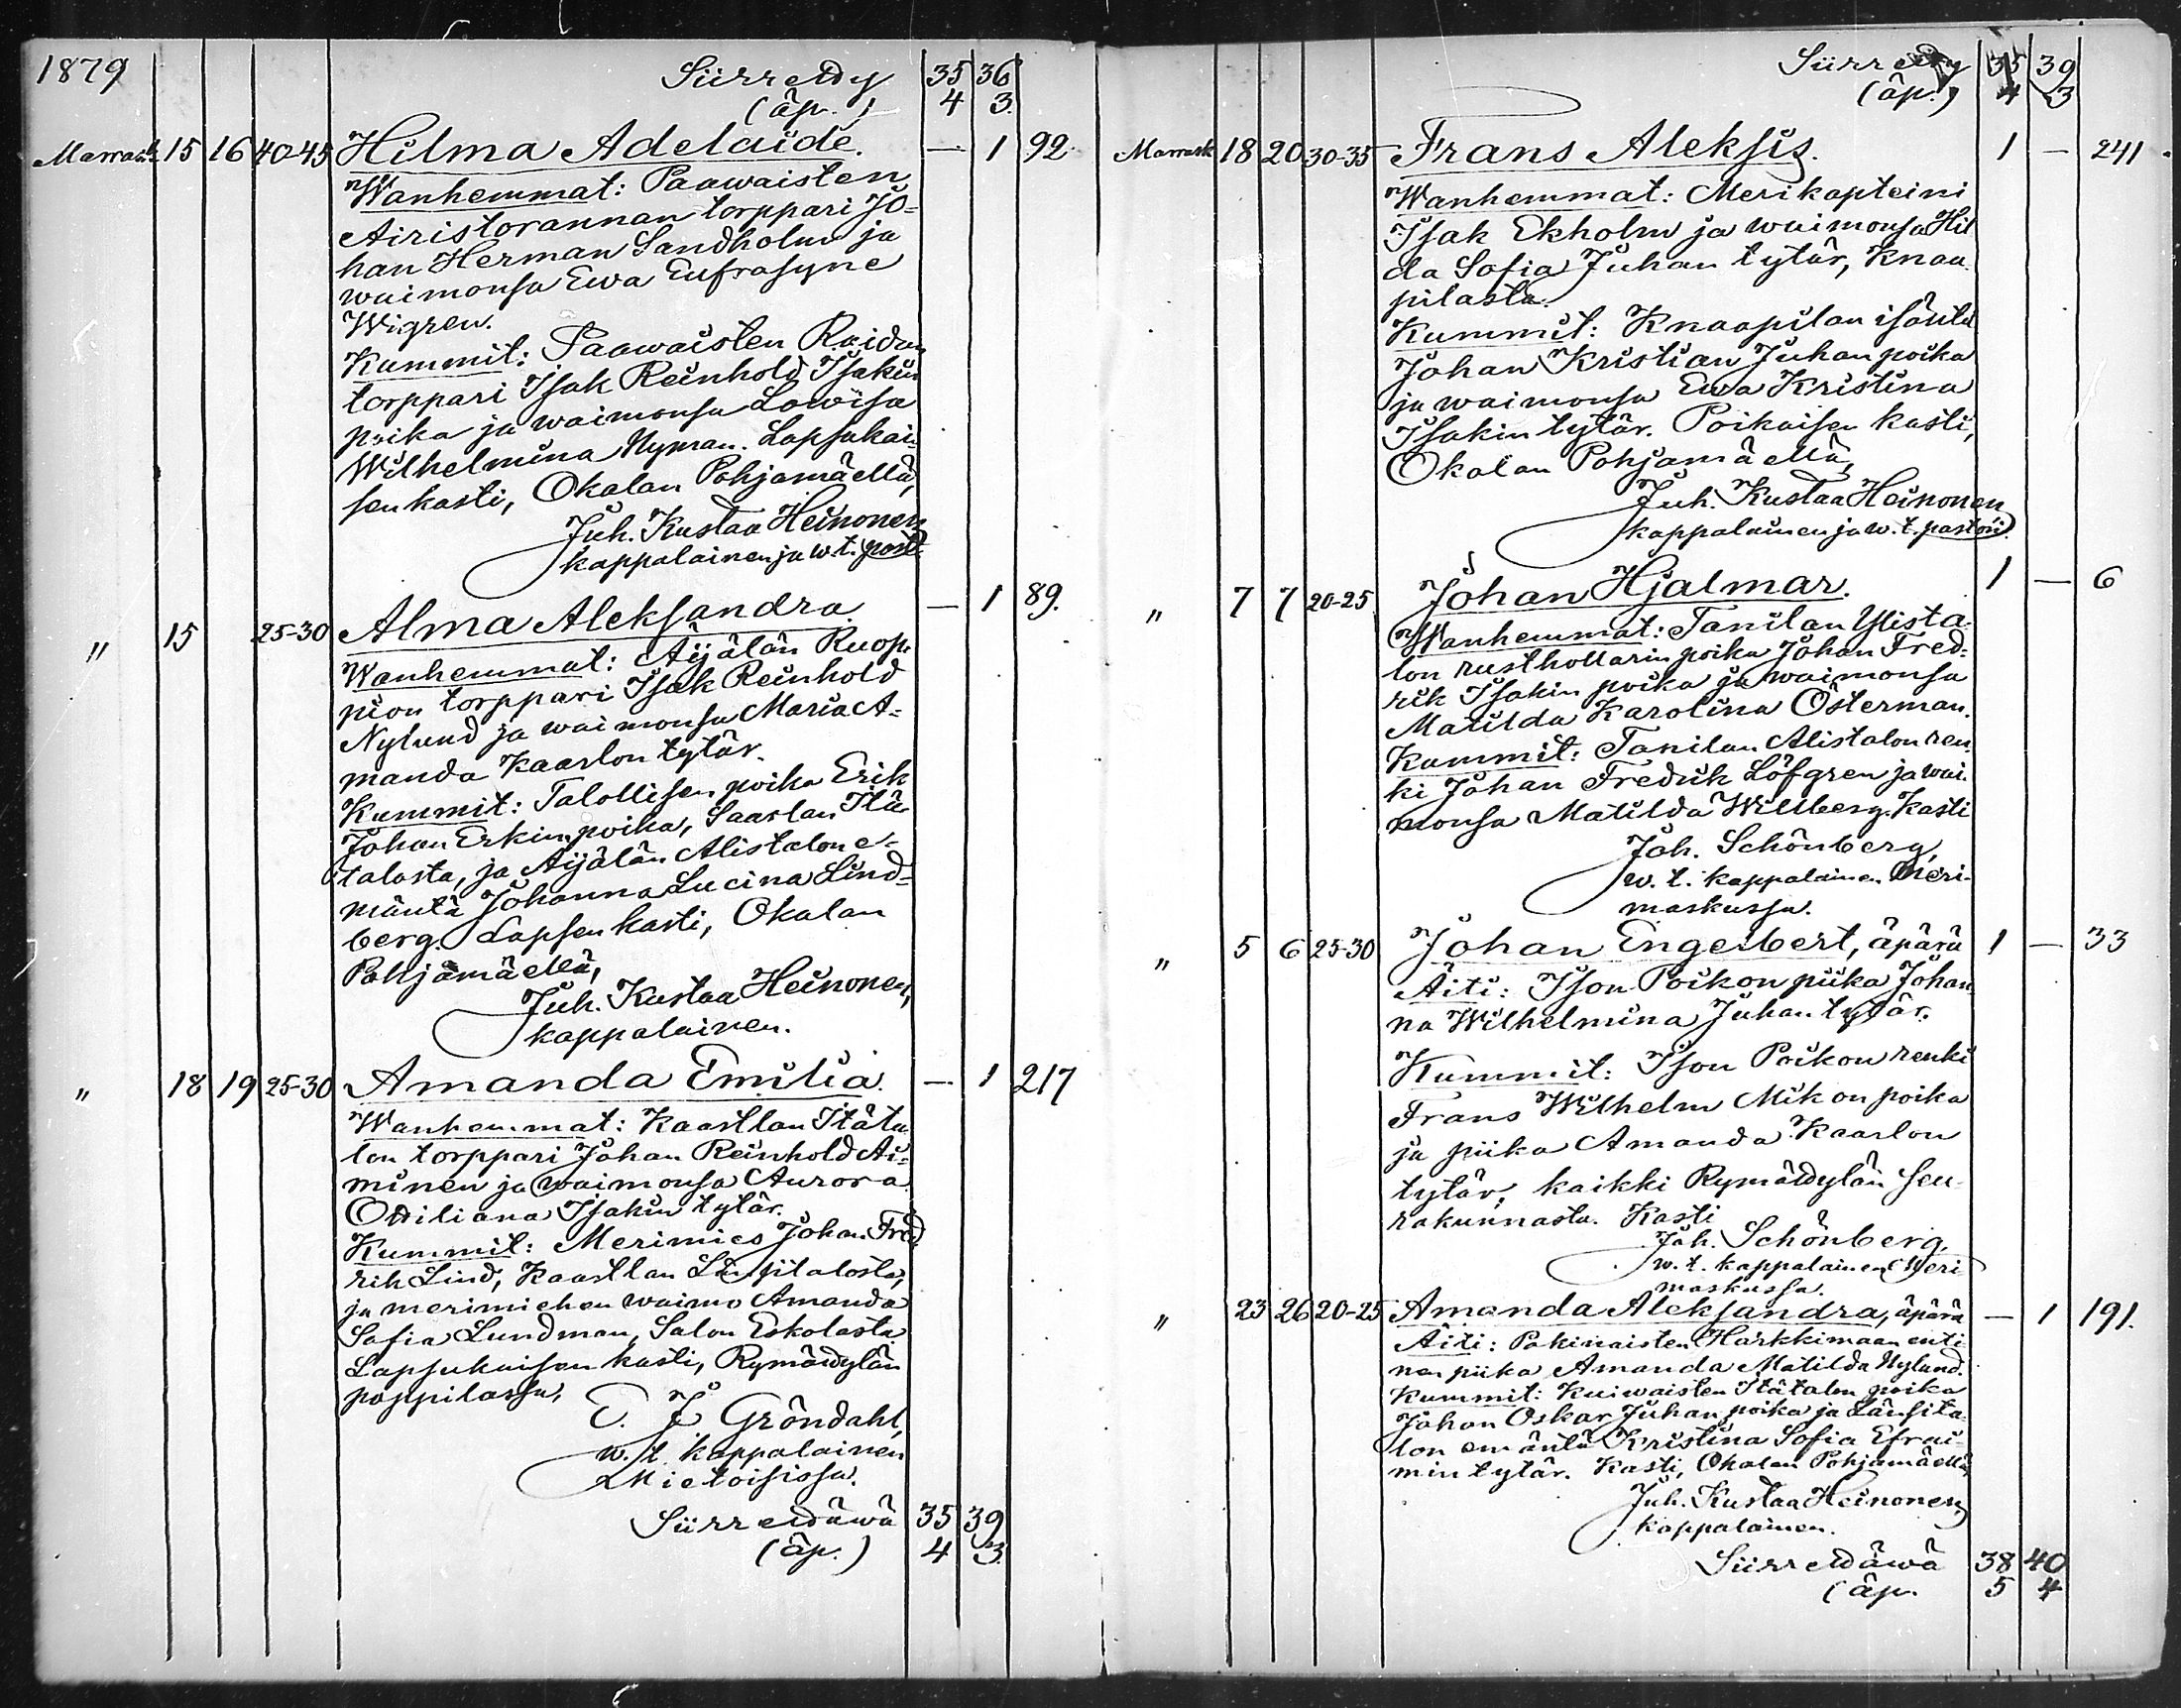 1879
Siirretty 35 36
(äp.) 4 3.
Marrask. 15 16 40-45 Hilma Adelaide. — 1 92
Wanhemmat: Paawaisten
Airistorannan torppari Jo-
han Herman Sandholm ja
waimonsa Ewa Eufrasyne
Wigren.
Kummit: Paawaisten Raidan
torppari Isak Reinhold Isakin
poika ja waimonsa Lowisa
Wilhelmina Nyman. Lapsukai-
sen kasti, Okalan Pohjamäellä,
Juh. Kustaa Heinonen
kappalainen ja w.t. past.
" 15 25-30 Alma Aleksandra. — 1 89.
Wanhemmat: Äijälän Ruop-
pion torppari Isak Reinhold
Nylund ja waimonsa Maria A-
manda Kaarlon tytär.
Kummit: Talollisen poika Erik
Johan Erkin poika, Saarlan Itä-
talosta, ja Äijälän Alistalon e-
mäntä Johanna Lucina Lind-
berg. Lapsen kasti, Okalan
Pohjamäellä,
Juh. Kustaa Heinonen,
kappalainen.
" 18 19 25-30 Amanda Emilia. — 1 217
Wanhemmat: Kaastlan Itäta-
lon torppari Johan Reinhold Ai-
minen ja waimonsa Aurora
Ottiliana Isakin tytär.
Kummit: Merimies Johan Fred-
rik Lind, Kaastlan Länsitalosta,
ja merimiehen waimo Amanda
Sofia Lundman, Salon Eskolasta.
Lapsukaisen kasti, Rymättylän
pappilassa,
E. J. Gröndahl,
w. t. kappalainen
Mietoisissa.
Siirrettäwä 35 39
(äp.) 4 3.
Siirretty 35 39
(äp.) 4 3
Marrask 18 20 30-35 Frans Aleksis. 1 — 241.
Wanhemmat: Merikapteini
Isak Ekholm ja waimonsa Hil
da Sofia Juhan tytär, Knaa-
pilasta.
Kummit: Knaapilan isäntä
Johan Kristian Juhan poika
ja waimonsa Ewa Kristina
Isakin tytär. Poikaisen kasti,
Okalan Pohjamäellä,
Juh. Kustaa Heinonen
kappalainen ja w. t. pastori.
" 7 7 20-25 Johan Hjalmar. 1 — 6
Wanhemmat: Tanilan Ylista-
lon rusthollarin poika Johan Fred-
rik Isakin poika ja waimonsa
Matilda Karolina Österman.
Kummit: Tanilan Alistalon ren-
ki Johan Fredrik Löfgren ja wai-
monsa Matilda Willberg. Kasti
Joh. Schönberg,
w. t. kappalainen Meri-
maskussa.
" 5 6 25-30 Johan Engelbert, äpärä 1 — 33
Äiti: Ison Poikon piika Johan-
na Wilhelmina Juhan tytär.
Kummit: Ison Poikon renki
Frans Wilhelm Mikon poika
ja piika Amanda Kaarlon
tytär, kaikki Rymättylän seu-
rakunnasta. Kasti
Joh. Schönberg,
w. t. kappalainen Meri-
maskussa.
" 23 26 20-25 Amanda Aleksandra, äpärä — 1 191.
Äiti: Pakinaisten Harkkimaan enti-
nen piika Amanda Matilda Nylund.
Kummit: Kuiwaisten Itätalon poika
Johan Oskar Juhan poika ja Länsita-
lon emäntä Kristina Sofia Efrai-
min tytär. Kasti, Okalan Pohjamäellä,
Juh. Kustaa Heinonen,
kappalainen.
Siirrettäwä 38 40
(äp. 5 4